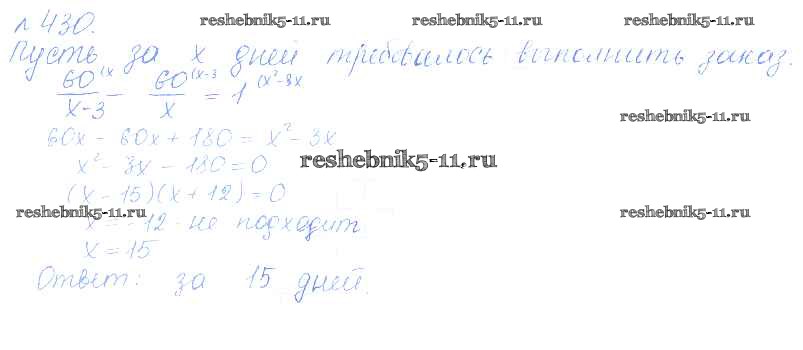 № 430. reshebnik5-11.ru reshebnik5-11.ru reshebnik5-11.ru
Пусть за x дней требовалось выполнить заказ.
60(x / x-3 - 60(x-3 / x = 1 (x²-3x
reshebnik5-11.ru
60x - 60x + 180 = x² - 3x
x² - 3x - 180 = 0 reshebnik5-11.ru
(x - 15)(x + 12) = 0
reshebnik5-11.ru reshebnik5-11.ru
x = -12 - не подходит
x = 15
Ответ: за 15 дней.